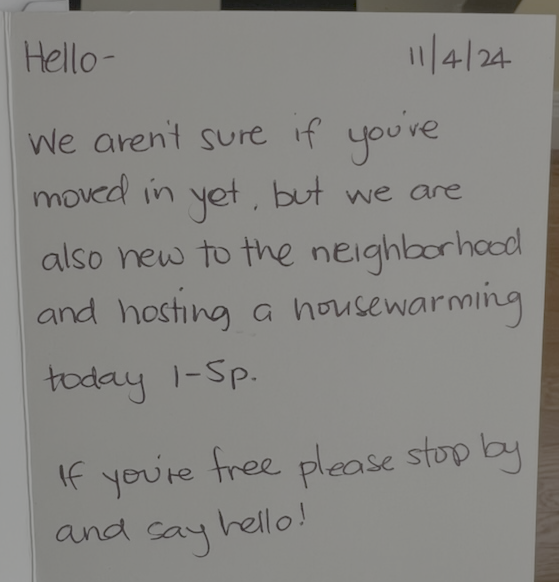 Hello- 11/4/24
We aren't sure if you've
moved in yet, but we are
also new to the neighborhood
and hosting a housewarming
today 1-5p.
If you're free please stop by
and say hello!